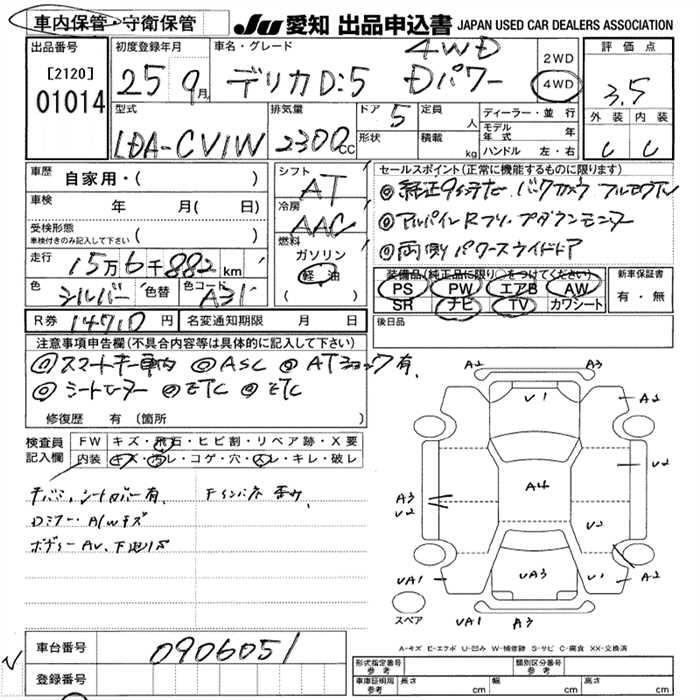 車内保管・守衛保管
JU 愛知 出品申込書 JAPAN USED CAR DEALERS ASSOCIATION
出品番号
[2120]
01014
初度登録年月
25 9月
車名・グレード
4WD
デリカD:5 Dパワー
2WD
4WD
評価点
3.5
外装 内装
型式
LDA-CV1W
排気量
2300cc
ドア 5
形状
定員 人
積載 kg
ディーラー・並行
モデル年式 年
ハンドル 左・右
車歴 自家用・( )
車検 年 月( 日)
受検形態
車検付きのみ記入して下さい ( )
走行 15万6千882km
色 シルバー 色替 色コード A31
R券 14710円 名変通知期限 月 日
シフト
AT
冷房
AAC
燃料
ガソリン
軽油
( )
セールスポイント(正常に機能するものに限ります)
両側パワースライドドア
装備品(純正品に限り○をつけてください)
PS PW エアB AW
SR ナビ TV カワシート
新車保証書
有・無
後日品
注意事項申告欄(不具合内容等は具体的に記入して下さい)
スマートキー車内 ◎ASC ◎ATショック有.
◎シートヒーター ◎ETC ◎ETC
修復歴 有 (箇所 )
検査員記入欄
FW キズ・飛石・ヒビ割・リペア跡・X要
内装 キズ・汚レ・コゲ・穴・スレ・キレ・破レ
Dミラー・A/Wキズ
A2 A3
V1
A2
A4
U2
A3
U2
U2
UA1 UA3 U1 A2
UA1 A3
スペア
A-キズ E-エクボ U-凹み W-補修跡 S-サビ C-腐食 XX-交換済
車台番号 0906051
登録番号
形式指定番号 参考
類別区分番号 参考
車庫証明用 参考
長さ cm 幅 cm 高さ cm